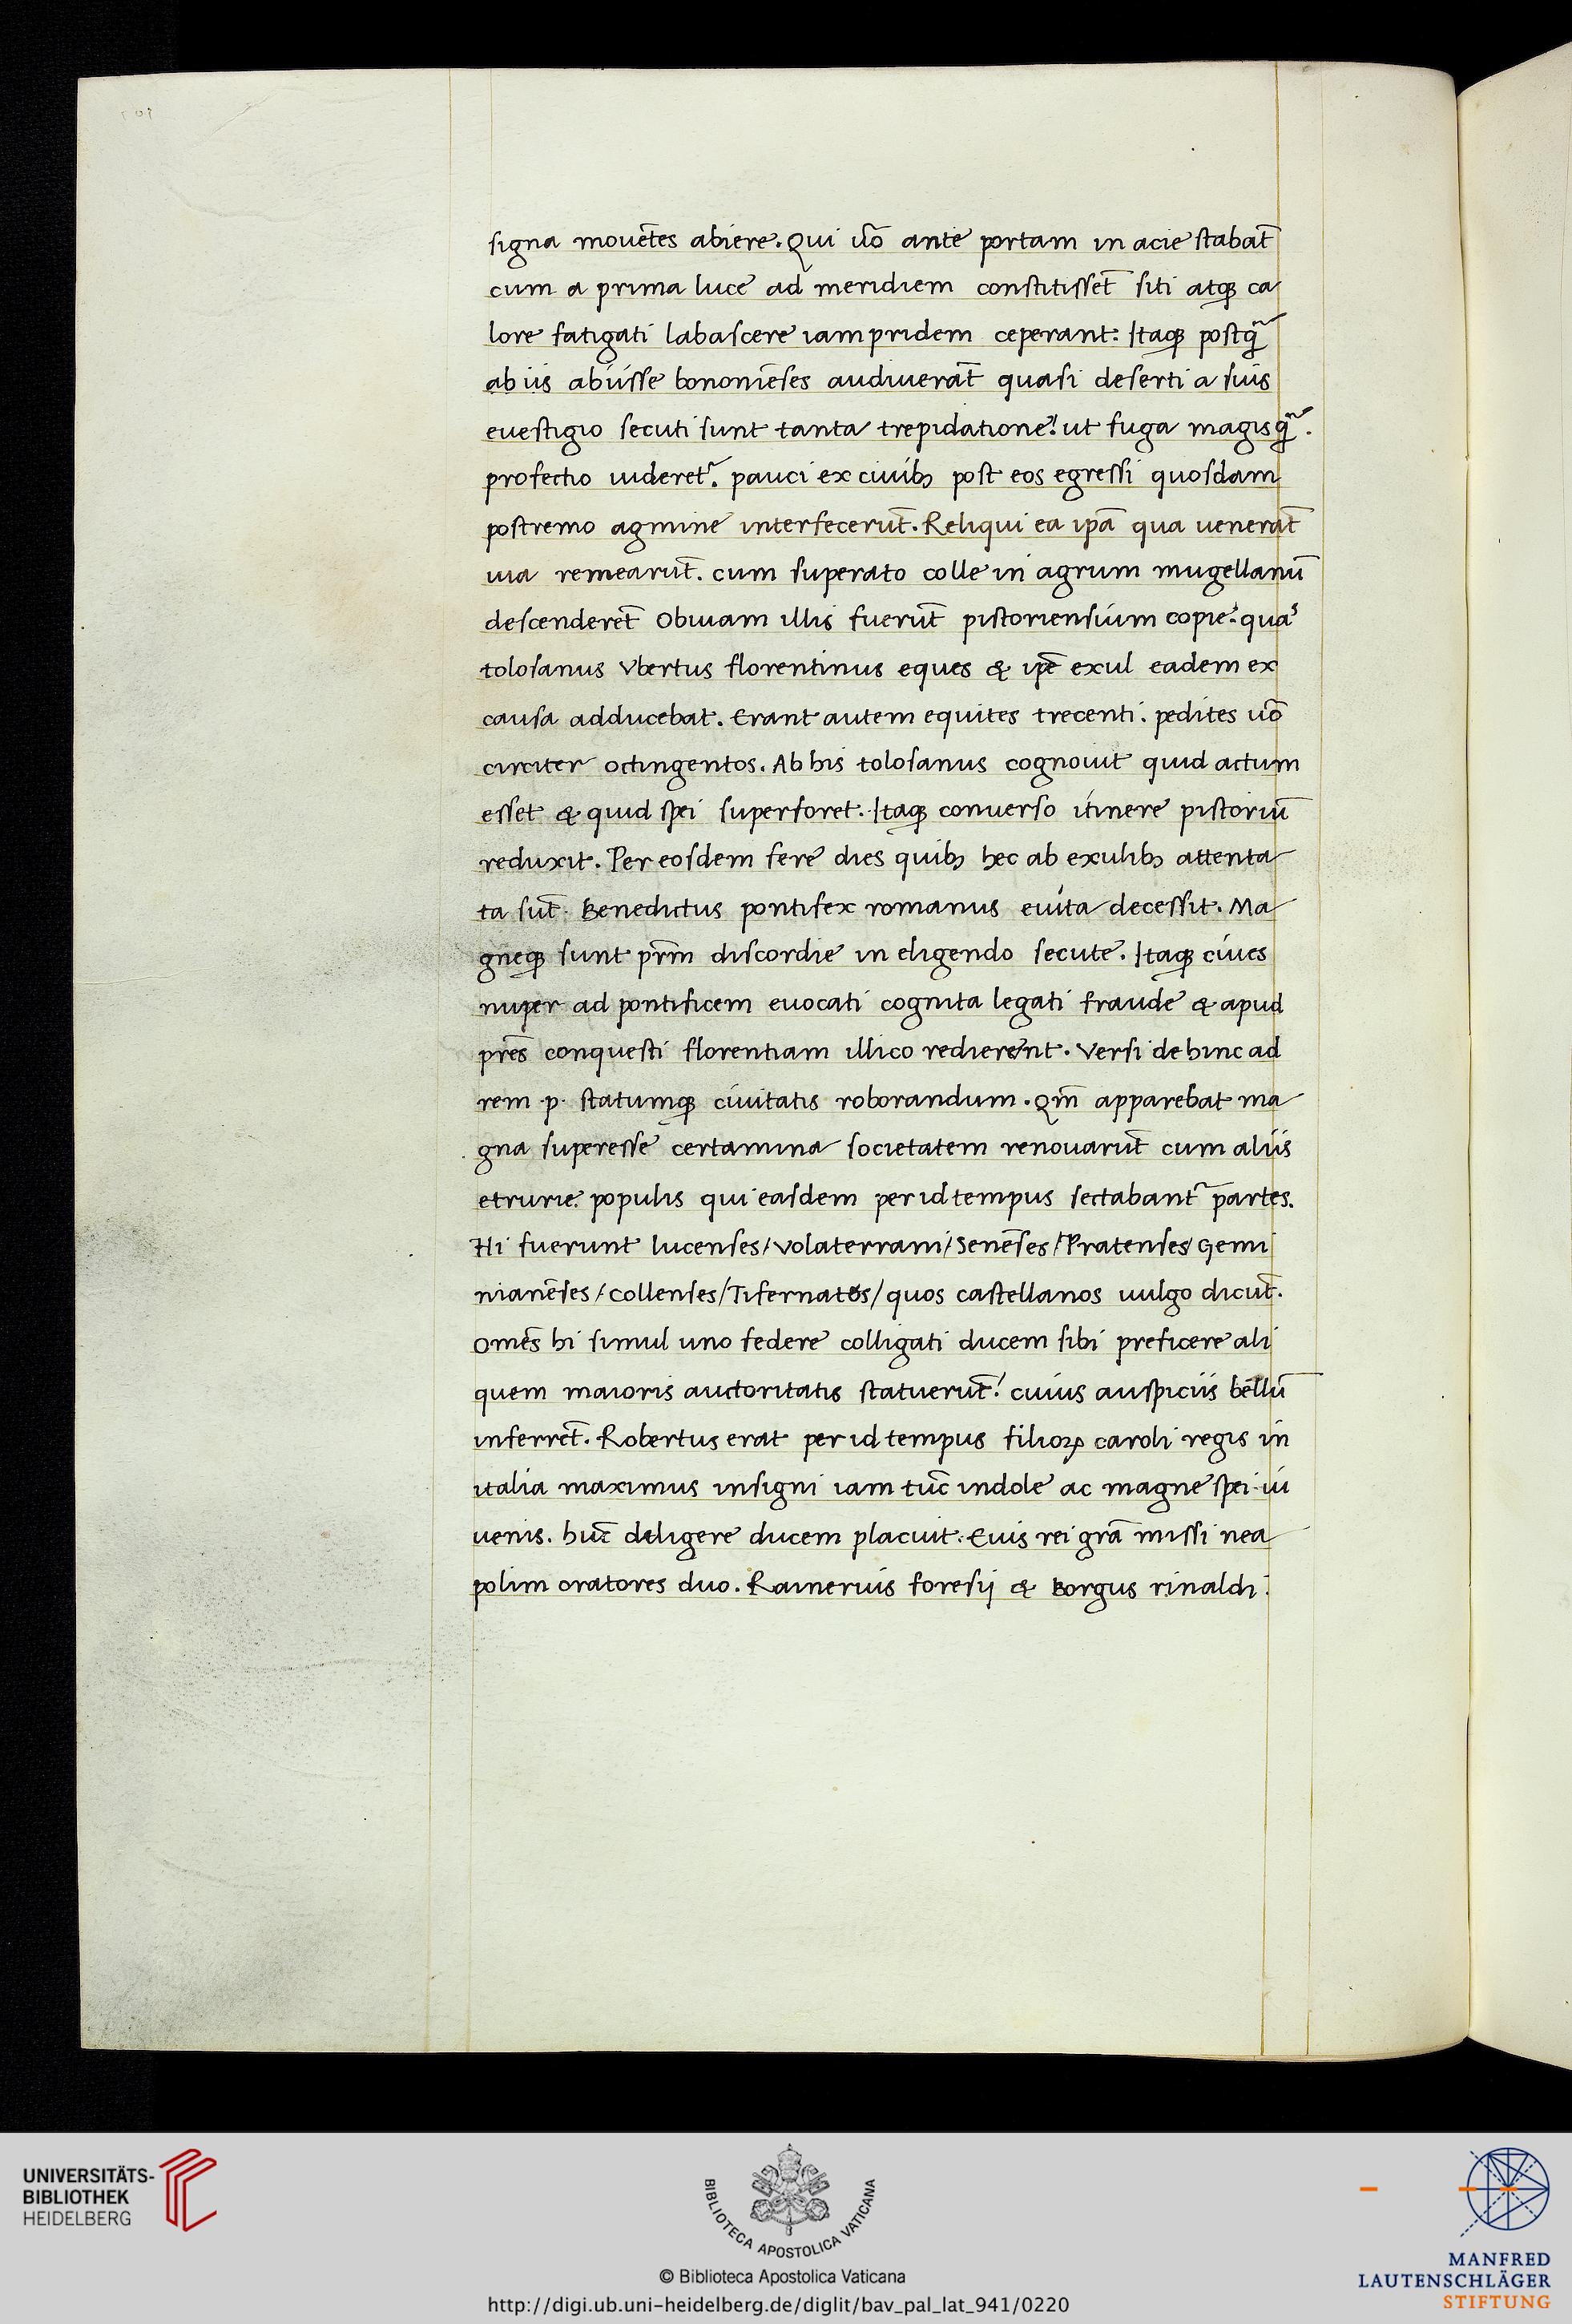 signa mouẽtes abiere. Qui uõ ante portam in acie stabãt
cum a prima luce ad meridiem constitissẽt siti atqꝫ ca
lore fatigati labascere iampridem ceperant. Itaqꝫ postq̃
ab iis abiisse bononiẽses audiuerãt quasi deserti a suis
euestigio secuti sunt tanta trepidatione! ut fuga magis q̃.
profectio uideret᷑. pauci ex ciuibꝫ post eos egressi quosdam
postremo agmine interfecerũt. Reliqui ea ip̃a qua uenerãt
uia remearũt. cum superato colle in agrum mugellanũ
descenderẽt obuiam illis fuerũt pistoriensium copie: quas
tolosanus Vbertus florentinus eques & ip̃e exul eadem ex
causa adducebat. Erant autem equites trecenti. pedites uõ
circiter octingentos. Ab his tolosanus cognouit quid actum
esset & quid spei superforet. Itaqꝫ conuerso itinere pistoriũ
reduxit. Per eosdem fere dies quibꝫ hec ab exulibꝫ attenta
ta sũt. Benedictus pontifex romanus euita decessit. Ma
gneqꝫ sunt pr̃m discordie in eligendo secute. Itaqꝫ ciues
nuper ad pontificem euocati cognita legati fraude & apud
pr̃es conquesti florentiam illico redierent. Versi dehinc ad
rem .p. statumqꝫ ciuitatis roborandum. Qm̃ apparebat ma
gna superesse certamina societatem renouarũt cum aliis
etrurie populis qui easdem per id tempus sectabant᷑ partes.
Hi fuerunt lucenses/ Volaterrani/ Senẽses/ Pratenses/ Gemi
nianẽses/ Collenses/ Tifernates/ quos castellanos uulgo dicũt.
Omẽs hi simul uno federe colligati ducem sibi preficere ali
quem maioris auctoritatis statuerũt! cuius auspiciis bellũ
inferrẽt. Robertus erat per id tempus filioꝝ caroli regis in
italia maximus insigni iam tũc indole ac magne spei iu
uenis. hũc deligere ducem placuit. Euis rei grã missi nea
polim oratores duo. Rainerius foresij & Borgus rinaldi.
UNIVERSITÄTS-
BIBLIOTHEK
HEIDELBERG
BIBLIOTECA APOSTOLICA VATICANA
© Biblioteca Apostolica Vaticana
http://digi.ub.uni-heidelberg.de/diglit/bav_pal_lat_941/0220
MANFRED
LAUTENSCHLÄGER
STIFTUNG